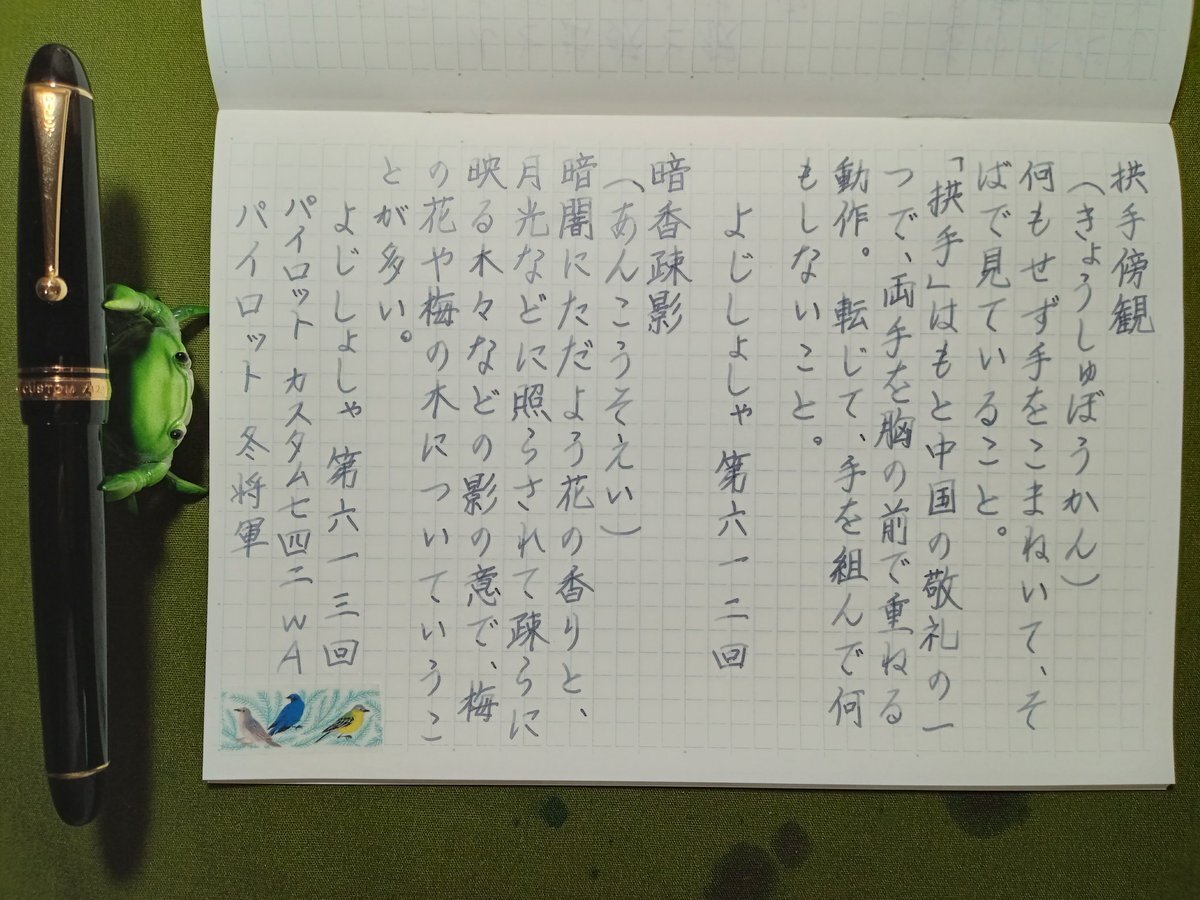 拱手傍観
(きょうしゅぼうかん)
何もせず手をこまねいて、そ
ばで見ていること。
「拱手」はもと中国の敬礼の一
つで、両手を胸の前で重ねる
動作。転じて、手を組んで何
もしないこと。
よじしょしゃ 第六一二回
暗香疎影
(あんこうそえい)
暗闇にただよう花の香りと、
月光などに照らされて疎らに
映る木々などの影の意で、梅
の花や梅の木についていうこ
とが多い。
よじしょしゃ 第六一三回
パイロット カスタム七四二 WA
パイロット 冬将軍
CUSTOM